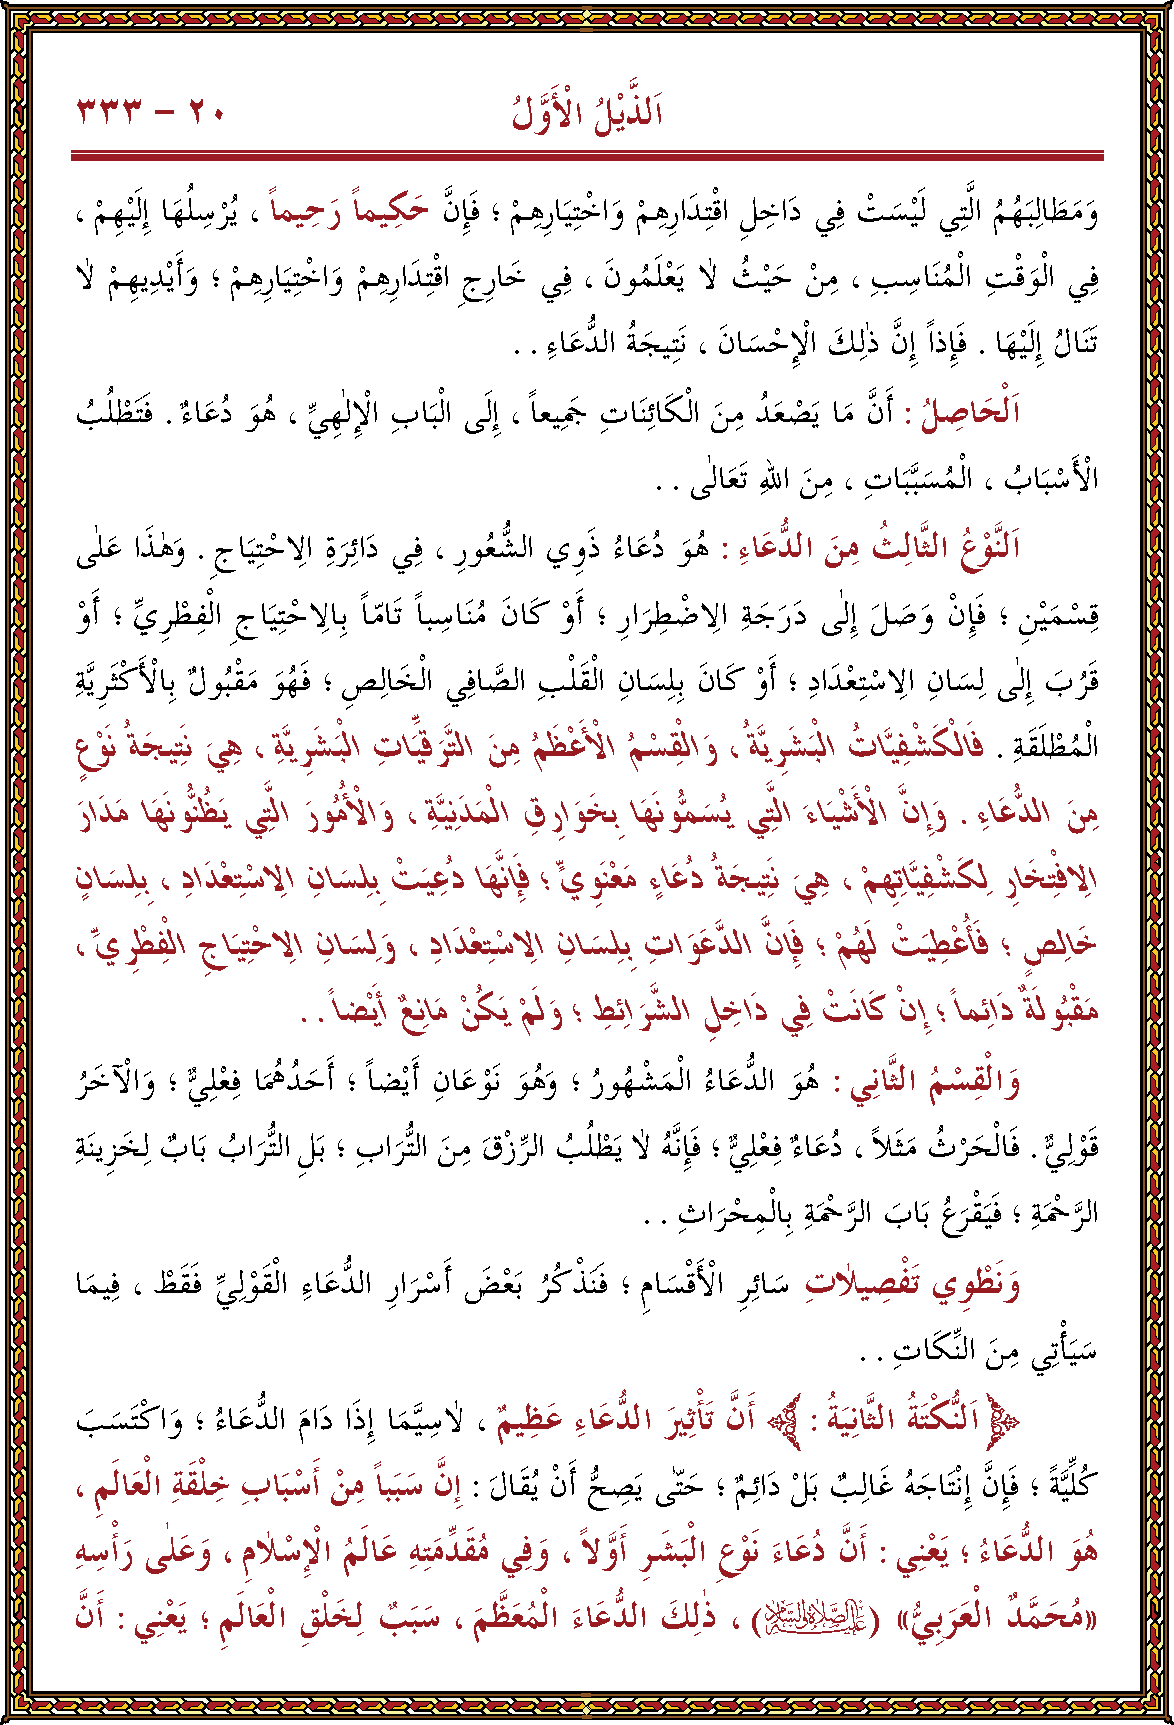 اَلذَّيْلُ الْأَوَّلُ
٢٠ - ٣٣٣
وَمَطَالِبَهُمُ الَّتِي لَيْسَتْ فِي دَاخِلِ اقْتِدَارِهِمْ وَاخْتِيَارِهِمْ ؛ فَإِنَّ حَكِيماً رَحِيماً ، يُرْسِلُهَا إِلَيْهِمْ ،
فِي الْوَقْتِ الْمُنَاسِبِ ، مِنْ حَيْثُ لَا يَعْلَمُونَ ، فِي خَارِجِ اقْتِدَارِهِمْ وَاخْتِيَارِهِمْ ؛ وَأَيْدِيهِمْ لَا
تَنَالُ إِلَيْهَا . فَإِذاً إِنَّ ذٰلِكَ الْإِحْسَانَ ، نَتِيجَةُ الدُّعَاءِ . .
اَلْحَاصِلُ : أَنَّ مَا يَصْعَدُ مِنَ الْكَائِنَاتِ جَمِيعاً ، إِلَى الْبَابِ الْإِلٰهِيِّ ، هُوَ دُعَاءٌ . فَتَطْلُبُ
الْأَسْبَابُ ، الْمُسَبَّبَاتِ ، مِنَ اللهِ تَعَالٰى . .
اَلنَّوْعُ الثَّالِثُ مِنَ الدُّعَاءِ : هُوَ دُعَاءُ ذَوِي الشُّعُورِ ، فِي دَائِرَةِ الِاحْتِيَاجِ . وَهٰذَا عَلٰى
قِسْمَيْنِ ؛ فَإِنْ وَصَلَ إِلٰى دَرَجَةِ الِاضْطِرَارِ ؛ أَوْ كَانَ مُنَاسِباً تَامّاً بِالِاحْتِيَاجِ الْفِطْرِيِّ ؛ أَوْ
قَرُبَ إِلٰى لِسَانِ الِاسْتِعْدَادِ ؛ أَوْ كَانَ بِلِسَانِ الْقَلْبِ الصَّافِي الْخَالِصِ ؛ فَهُوَ مَقْبُولٌ بِالْأَكْثَرِيَّةِ
الْمُطْلَقَةِ . فَالْكَشْفِيَّاتُ الْبَشَرِيَّةُ ، وَالْقِسْمُ الْأَعْظَمُ مِنَ التَّرَقِّيَّاتِ الْبَشَرِيَّةِ ، هِيَ نَتِيجَةُ نَوْعٍ
مِنَ الدُّعَاءِ . وَإِنَّ الْأَشْيَاءَ الَّتِي يُسَمُّونَهَا بِخَوَارِقِ الْمَدَنِيَّةِ ، وَالْأُمُورَ الَّتِي يَظُنُّونَهَا مَدَارَ
الِافْتِخَارِ لِكَشْفِيَّاتِهِمْ ، هِيَ نَتِيجَةُ دُعَاءٍ مَعْنَوِيٍّ ؛ فَإِنَّهَا دُعِيَتْ بِلِسَانِ الِاسْتِعْدَادِ ، بِلِسَانٍ
خَالِصٍ ؛ فَأُعْطِيَتْ لَهُمْ ؛ فَإِنَّ الدَّعَوَاتِ بِلِسَانِ الِاسْتِعْدَادِ ، وَلِسَانِ الِاحْتِيَاجِ الْفِطْرِيِّ ،
مَقْبُولَةٌ دَائِماً ؛ إِنْ كَانَتْ فِي دَاخِلِ الشَّرَائِطِ ؛ وَلَمْ يَكُنْ مَانِعٌ أَيْضاً . .
وَالْقِسْمُ الثَّانِي : هُوَ الدُّعَاءُ الْمَشْهُورُ ؛ وَهُوَ نَوْعَانِ أَيْضاً ؛ أَحَدُهُمَا فِعْلِيٌّ ؛ وَالْآخَرُ
قَوْلِيٌّ . فَالْحَرْثُ مَثَلاً ، دُعَاءٌ فِعْلِيٌّ ؛ فَإِنَّهُ لَا يَطْلُبُ الرِّزْقَ مِنَ التُّرَابِ ؛ بَلِ التُّرَابُ بَابٌ لِخَزِينَةِ
الرَّحْمَةِ ؛ فَيَقْرَعُ بَابَ الرَّحْمَةِ بِالْمِحْرَاثِ . .
وَنَطْوِي تَفْصِيلَاتِ سَائِرِ الْأَقْسَامِ ؛ فَنَذْكُرُ بَعْضَ أَسْرَارِ الدُّعَاءِ الْقَوْلِيِّ فَقَطْ ، فِيمَا
سَيَأْتِي مِنَ النِّكَاتِ . .
﴿ اَلنُّكْتَةُ الثَّانِيَةُ : ﴾ أَنَّ تَأْثِيرَ الدُّعَاءِ عَظِيمٌ ، لَاسِيَّمَا إِذَا دَامَ الدُّعَاءُ ؛ وَاكْتَسَبَ
كُلِّيَّةً ؛ فَإِنَّ إِنْتَاجَهُ غَالِبٌ بَلْ دَائِمٌ ؛ حَتّٰى يَصِحُّ أَنْ يُقَالَ : إِنَّ سَبَباً مِنْ أَسْبَابِ خِلْقَةِ الْعَالَمِ ،
هُوَ الدُّعَاءُ ؛ يَعْنِي : أَنَّ دُعَاءَ نَوْعِ الْبَشَرِ أَوَّلاً ، وَفِي مُقَدِّمَتِهِ عَالَمُ الْإِسْلَامِ ، وَعَلٰى رَأْسِهِ
«مُحَمَّدٌ الْعَرَبِيُّ» (عَلَيْهِ الصَّلَاةُ وَالسَّلَامُ) ، ذٰلِكَ الدُّعَاءَ الْمُعَظَّمَ ، سَبَبٌ لِخَلْقِ الْعَالَمِ ؛ يَعْنِي : أَنَّ